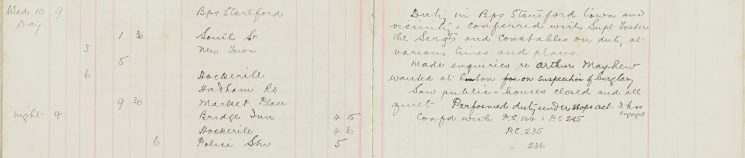 Wed 10 9 Bps Stortford
Day
1 30 South St
3 New Town
5
6 Hockerill
Hadham Rd
9 30 Market Place
Night 4 Bridge Inn 4 15
Hockerill 4 30
6 Police Stn 5
Duty in Bps Stortford town and
vicinity & conferred with Supt Foster
the Sergts and Constables on duty at
various times and places.
Made enquiries re Arthur Mayhew
wanted at on suspection of burglary
Saw public-houses closed and all
quiet Performed duty under shops act 3 hrs
engaged
Confd with P.C. 164 & P.C. 245
P.C. 235
" 236